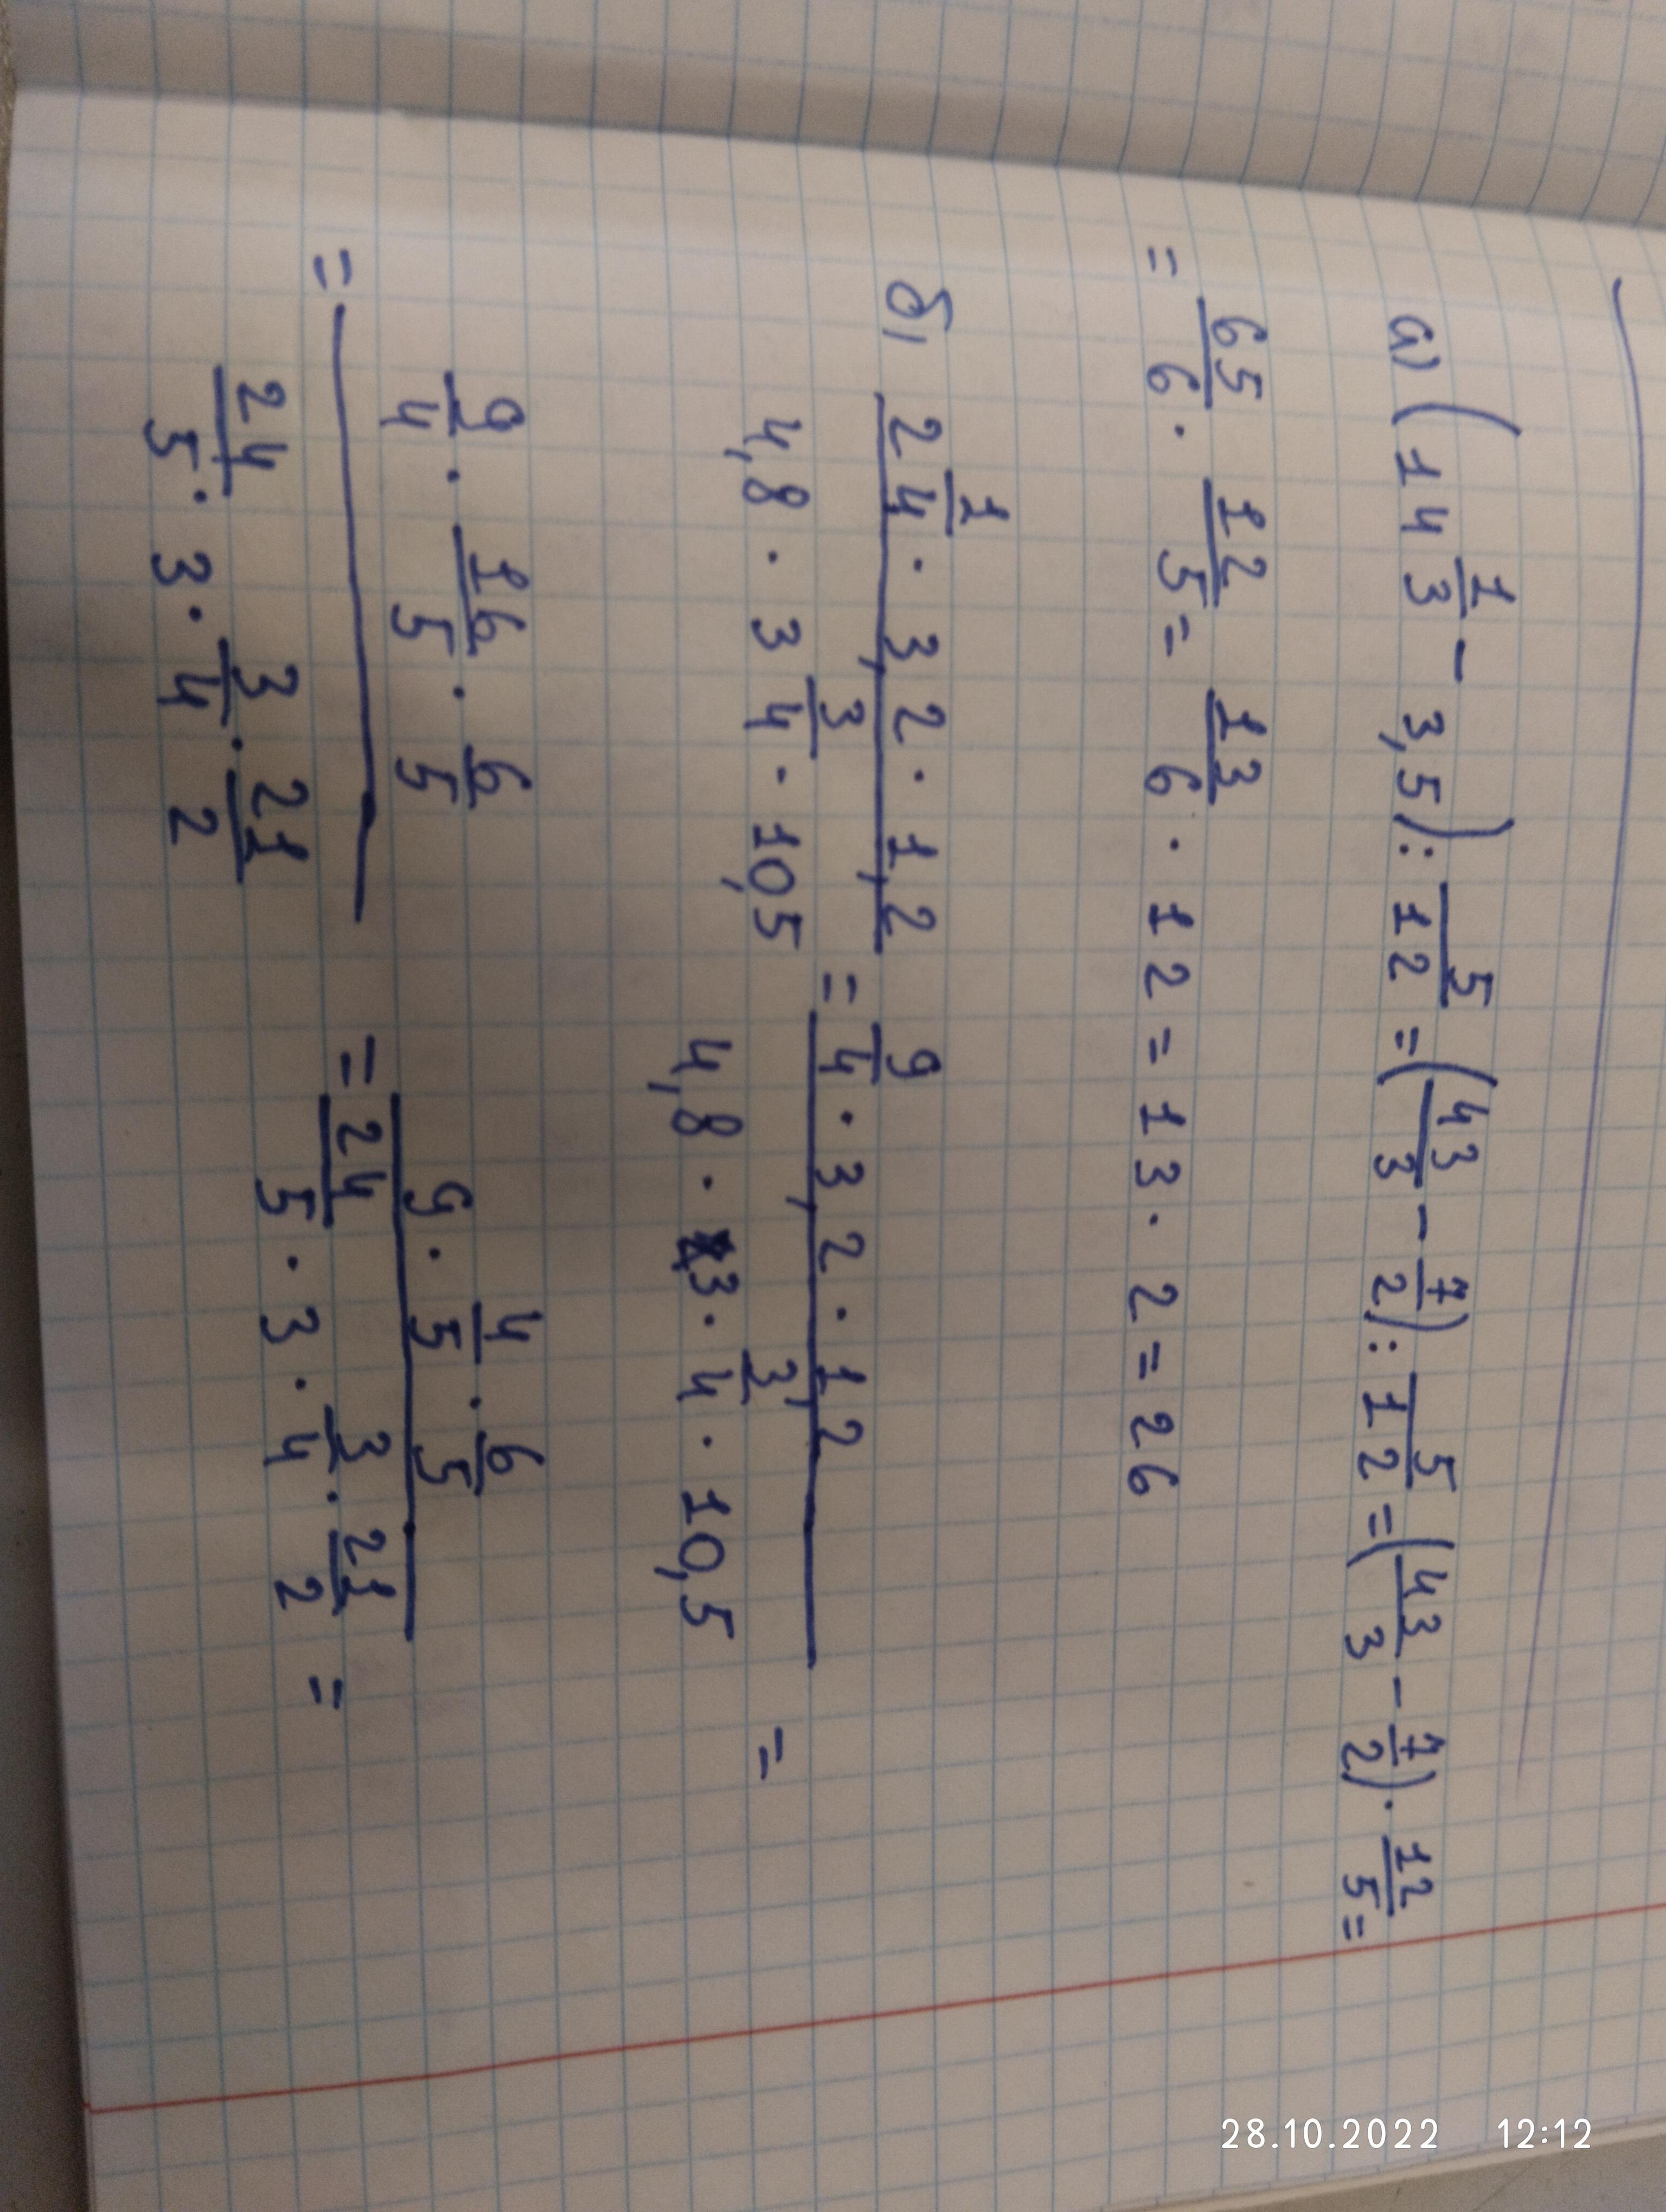 а) (14 1/3 - 3,5) : 5/12 = (43/3 - 7/2) : 5/12 = (43/3 - 7/2) · 12/5 =
= 65/6 · 12/5 = 13/6 · 12 = 13 · 2 = 26
б) (2 1/4 · 3,2 · 1,2)/(4,8 · 3 3/4 · 10,5) = (9/4 · 3,2 · 1,2)/(4,8 · 3 · 3/4 · 10,5) =
= (9/4 · 16/5 · 6/5)/(24/5 · 3 · 3/4 · 21/2) = (9 · 4/5 · 6/5)/(24/5 · 3 · 3/4 · 21/2) =
28.10.2022 12:12